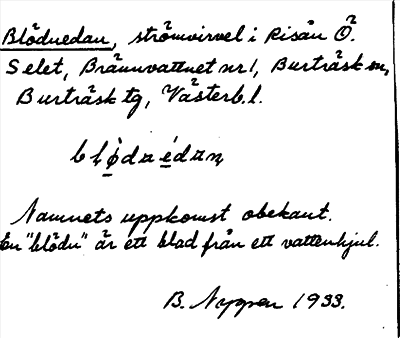 Blödnedan, strömvirvel i Risån Ö.
Selet, Brännvattnet nr 1, Burträsk sn,
Burträsk tg, Västerb. l.
Namnets uppkomst obekant.
En "blödu" är ett blad från ett vattenhjul.
B. Nyggren 1933.